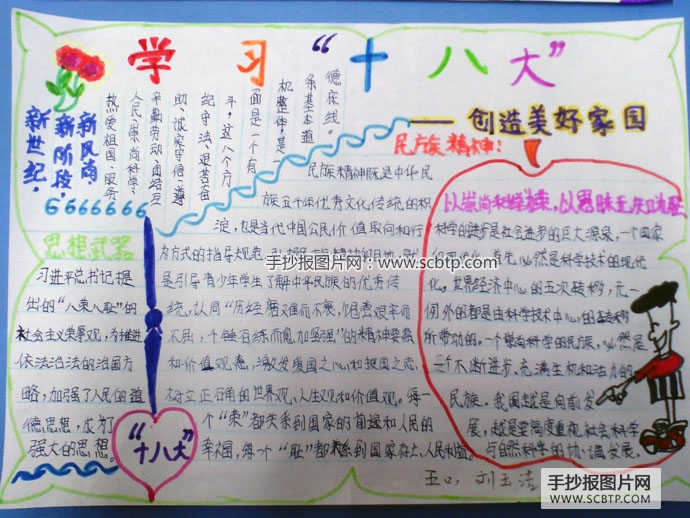 学习“十八大”
——创造美好家园
新风尚，
新阶段，
新世纪，
666666
德底线。
条基本道
机整体,是一
面是一个有
斗,这八个方
纪守法、艰苦奋
助、诚实守信、遵
辛勤劳动、团结互
人民、崇尚科学、
热爱祖国、服务
思想武器
习进平总书记提
出的“八荣八耻”的
社会主义荣辱观,为推进
依法治法的治国方
略,加强了人民的道
德思想,成为
强大的思想。
“十八大”
民族精神！
民族精神既是中华民
族五千年优秀文化传统的积
淀,也是当代中国公民价值取向和行
为方式的指导规范
是引导青少年学生了解中华民族的优秀传
统,认同“历经磨难而不衰,饱尝艰辛而
不屈,千锤百练而愈加坚强”的精神要义
和价值观念,激发爱国之心和报国之志,
树立正确的世界观,人生观和价值观。每一
个“荣”都关系到国家的前途和人民的
幸福,每个“耻”都关系到国家存亡、人民利益。
以崇尚科学为荣，以愚昧无知为耻
科学的进步是社会进步的巨大源泉,一个国家
的现代化,首先必然是科学技术的现代
化。世界经济中心的五次转移,无一
例外的都是由科学技术中心的转移
所带动的。一个崇尚科学的民族,必然是
一个不断进步、充满生机和活力的
民族。我国越是向前发
展,越是要高度重视社会科学
与自然科学的协调发展。
五口，刘玉洁
手抄报图片网：www.scbtp.com
手抄报图片网
WWW.SCBTP.COM